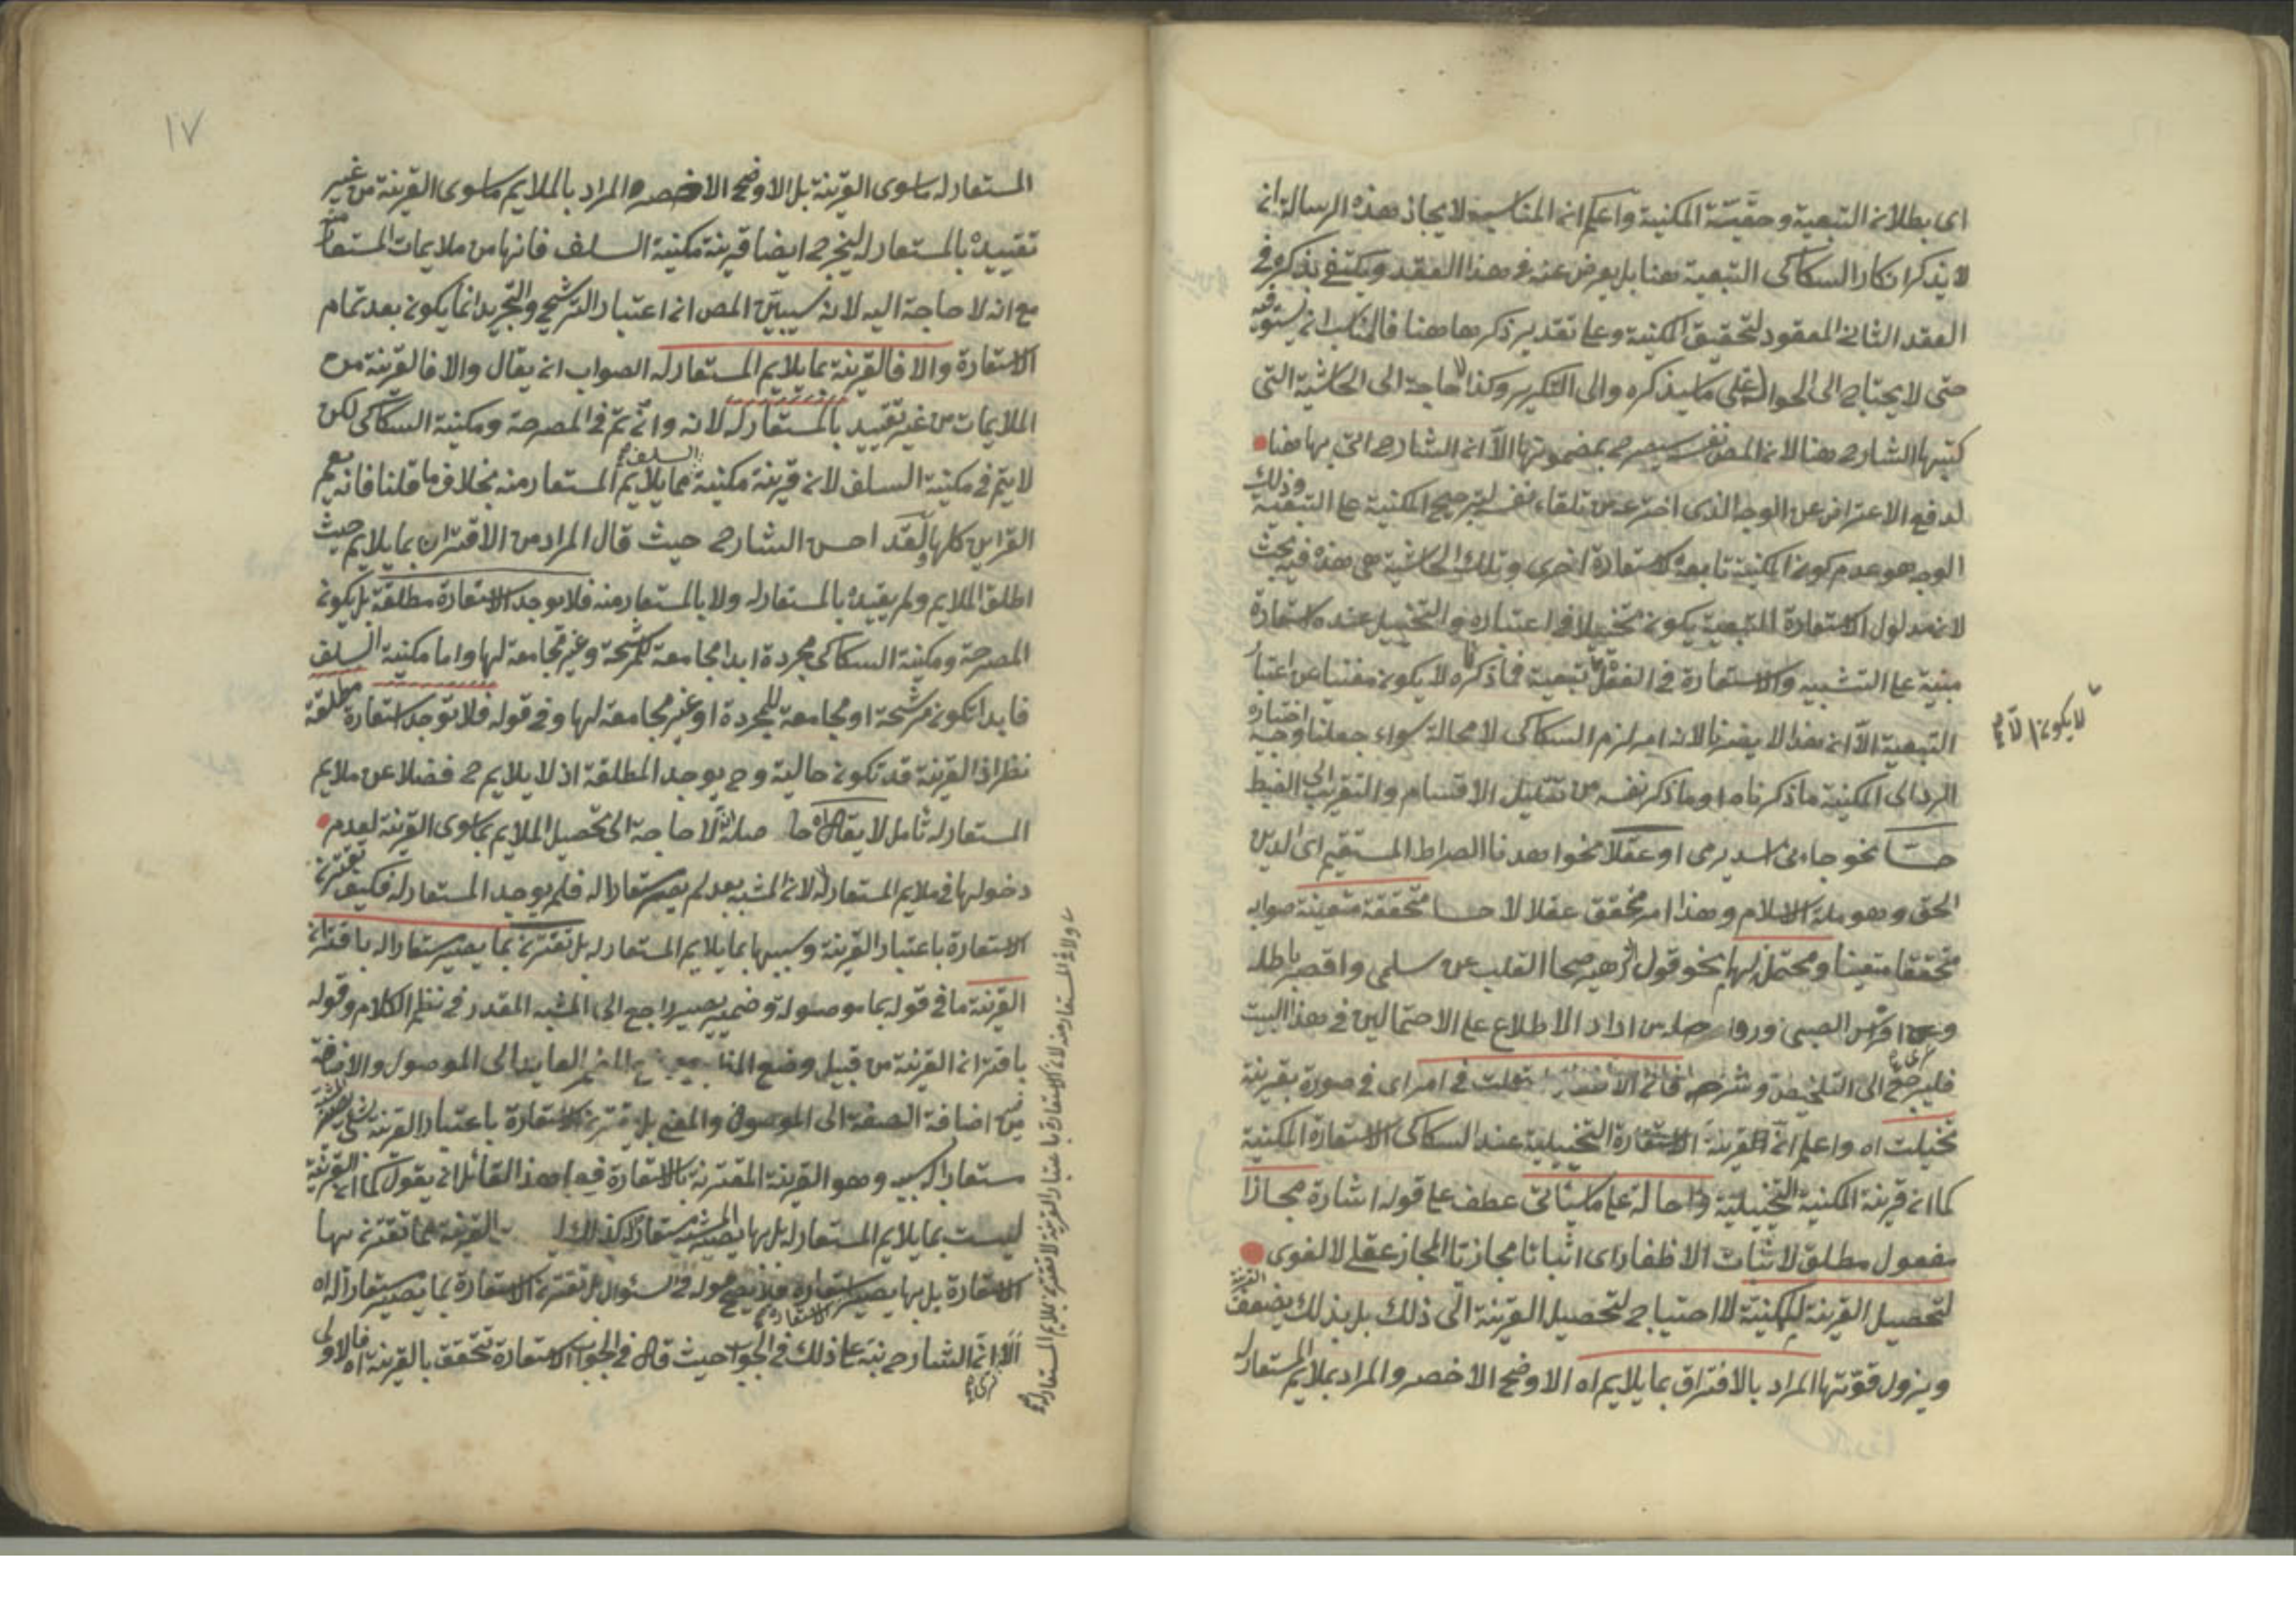 اى بطلان التبعية وحقية المكنية واعلم ان المناسب لايجاز هذه الرسالة ان
لا يذكر انكار السكاكى التبعية هنا بل يعرض عنه فى هذا العقد ويكتفى بذكره فى
العقد الثانى المعقود لتحقيق المكنية وعلى تقدير ذكرها هنا فالمناسب ان يستوفيه
حتى لا يحتاج الى الحوالة على ما سيذكره والى التكرير وكذا لا حاجة الى الحاشية التى
كتبها الشارح هنا لان المص نفسه سيصرح بمضمونها الا ان الشارح اتى بها هنا
لدفع الاعتراض عن الوجه الذى اخترعه من تلقاء نفسه لترجيح المكنية على التبعية وذلك
الوجه هو عدم كون المكنية تابعة لاستعارة اخرى وتلك الحاشية هى هذه فيه بحث
لان مدلول الاستعارة التبعية يكون تخييلا فى اعتباره والتخييل عنده استعارة
مبنية على التشبيه والاستعارة فى الفعل لا تبعية فما ذكره لا يكون مغنيا عن اعتبار
لا يكون الا
التبعية الا ان هذا لا يضرنا لانه امر لزم السكاكى لا محالة سواء جعلنا وجه اختياره
الرد الى المكنية ما ذكرناه او ما ذكر نفسه من تقليل الاقسام والتقريب الى الضبط
حسا نحو جاءنى اسد يرمى او عقلا نحو اهدنا الصراط المستقيم اى الدين
الحق وهو ملة الاسلام وهذا امر محقق عقلا لا حسا متحققة متعينة صوابه
متحققا متعينا ومحتمل لهما نحو قول زهير صحا القلب عن سلمى واقصر باطله
وعرى افراس الصبى ورواحله من اراد الاطلاع على الاحتمالين فى هذا البيت
فليرجع الى التلخيص وشرحه
تخيلت اه واعلم ان القرينة الاستعارة التخييلية عند السكاكى الاستعارة المكنية
كما ان قرينة المكنية التخييلية واحالة على ما سيأتى عطف على قوله اشارة مجازا
مفعول مطلق لاثبات الاظفار اى اثباتا مجازيا المجاز عقلى لا لغوى
لتحصيل القرينة للمكنية لا احتياج لتحصيل القرينة الى ذلك بل بذلك يضعف القرينة
ويزول قوتها المراد بالاقتران بما يلايم اه الاوضح الاخصر والمراد بملايم المستعار له
١٧
المستعار له ما سوى القرينة بل الاوضح الاخصر والمراد بالملايم ما سوى القرينة من غير
تقييده بالمستعار له ليخرج ايضا قرينة مكنية السلف فانها من ملايمات المستعار منه
مع انه لا حاجة اليه لانه سيبين المص ان اعتبار الترشيح والتجريد انما يكون بعد تمام
الاستعارة والا فالقرينة مما يلايم المستعار له الصواب ان يقال والا فالقرينة من
الملايمات من غير تقييد بالمستعار له لانه وان تم فى المصرحة ومكنية السكاكى لكن
لا يتم فى مكنية السلف لان قرينة مكنية السلف مما يلايم المستعار منه بخلاف ما قلنا فانه يعم
القراين كلها ولقد احسن الشارح حيث قال المراد من الاقتران بما يلايم حيث
اطلق الملايم ولم يقيده بالمستعار له ولا بالمستعار منه فلا يوجد الاستعارة مطلقة بل يكون
المصرحة ومكنية السكاكى مجردة ابدا مجامعة للمرشحة وغير مجامعة لها واما مكنية السلف
فابدا تكون مرشحة او مجامعة للمجردة او غير مجامعة لها وفى قوله فلا توجد استعارة مطلقة
نظر اذ القرينة قد تكون حالية وح يوجد المطلقة اذ لا يلايم ح فضلا عن ملايم
المستعار له تأمل لا يقال اه حاصله انه لا حاجة الى تخصيل الملايم بما سوى القرينة لعدم
دخولها فى ملايم المستعار له لان المشبه بعد لم يصر مستعارا له فلم يوجد المستعار له فكيف تقترن
الاستعارة باعتبار القرينة وسببها بما يلايم المستعار له بل تقترن بما يصير مستعارا له باقتران
القرينة ما فى قوله بما موصولة وضمير يصير راجع الى المشبه المقدر فى نظم الكلام وقوله
باقتران القرينة من قبيل وضع المظهر موضع المضمر العايد الى الموصول والاضافة
من اضافة الصفة الى الموصوف والمعنى بل تقترن الاستعارة باعتبار القرينة بشئ يصير المشبه
مستعارا له بسببه وهو القرينة المقترنة بالاستعارة فمراد هذا القائل ان يقول كما ان القرينة
ليست بما يلايم المستعار له بل بها يصير المشبه مستعارا له كذلك ليست القرينة مما تقترن بها
الاستعارة بل بها يصير استعارة فلا يصح قوله فى السؤال بل تقترن الاستعارة بما يصير مستعارا له اه
الا ان الشارح نبه على ذلك فى الجواب حيث قال فى الجواب الاستعارة تتحقق بالقرينة اه فالاولى
ولا ملايم المستعار منه لان الاستعارة باعتبار القرينة لا تقترن بملايم المستعار له